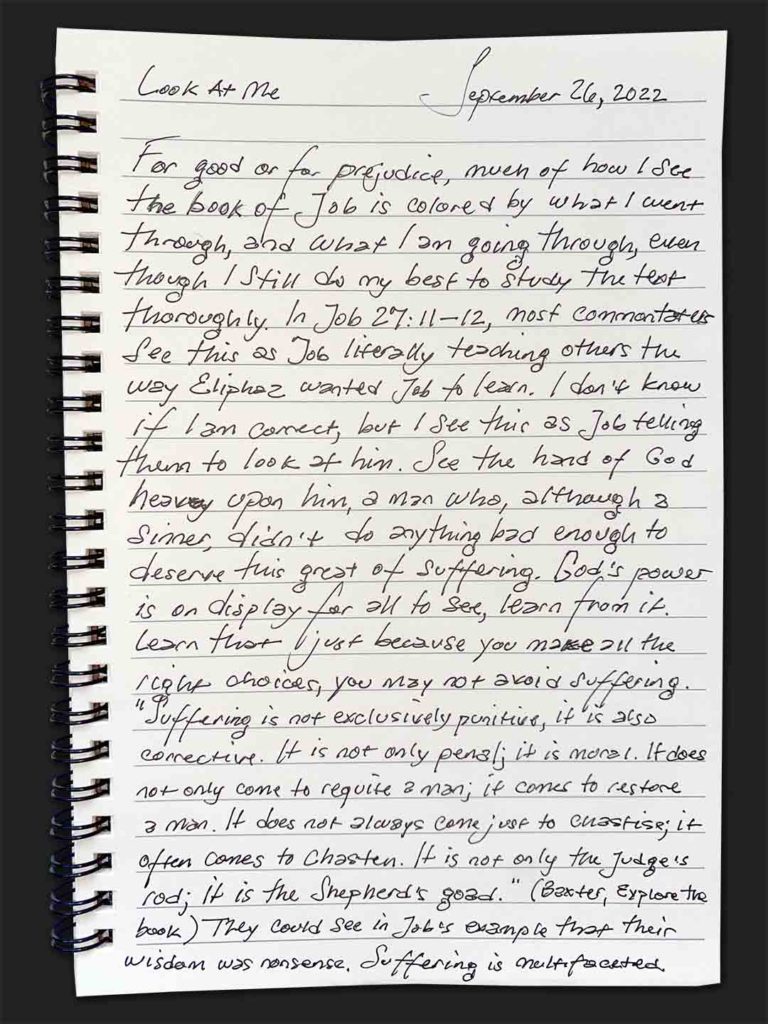 Look At Me September 26, 2022
For good or for prejudice, much of how I see
the book of Job is colored by what I went
through, and what I am going through, even
though I still do my best to study the text
thoroughly. In Job 27:11-12, most commontaters
see this as Job literally teaching others the
way Eliphaz wanted Job to learn. I don't know
if I am correct, but I see this as Job telling
them to look at him. See the hand of God
heavy upon him, a man who, although a
sinner, didn't do anything bad enough to
deserve this great of suffering. God's power
is on display for all to see, learn from it.
Learn that just because you make all the
right choices, you may not avoid suffering.
"Suffering is not exclusively punitive, it is also
corrective. It is not only penal; it is moral. It does
not only come to requite a man; it comes to restore
a man. It does not always come just to chastise; it
often comes to chasten. It is not only the Judge's
rod; it is the Shepherd's goad." (Baxter, Explore the
book) They could see in Job's example that their
wisdom was nonsense. Suffering is multifaceted.